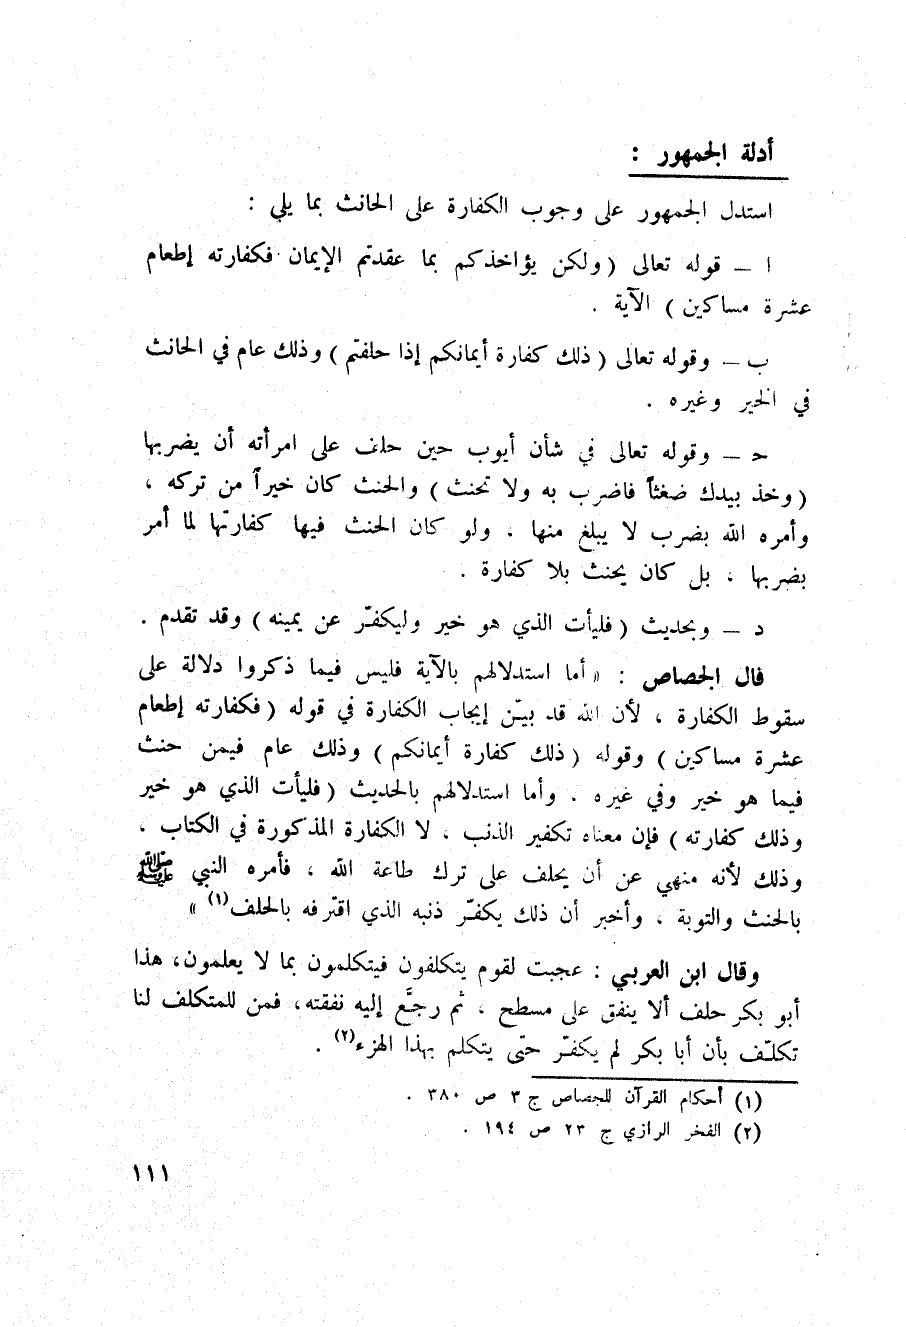 أدلة الجمهور :
استدل الجمهور على وجوب الكفارة على الحانث بما يلي :
ا — قوله تعالى ( ولكن يؤاخذكم بما عقدتم الإيمان فكفارته إطعام
عشرة مساكين ) الآية .
ب — وقوله تعالى ( ذلك كفارة أيمانكم إذا حلفتم ) وذلك عام في الحانث
في الخير وغيره .
حـ — وقوله تعالى في شأن أيوب حين حلف على امرأته أن يضربها
( وخذ بيدك ضغثاً فاضرب به ولا تحنث ) والحنث كان خيراً من تركه ،
وأمره الله بضرب لا يبلغ منها . ولو كان الحنث فيها كفارتها لما أمر
بضربها ، بل كان يحنث بلا كفارة .
د — وبحديث ( فليأت الذي هو خير وليكفّر عن يمينه ) وقد تقدم .
قال الجصاص : « أما استدلالهم بالآية فليس فيما ذكروا دلالة على
سقوط الكفارة ، لأن الله قد بيّن إيجاب الكفارة في قوله ( فكفارته إطعام
عشرة مساكين ) وقوله ( ذلك كفارة أيمانكم ) وذلك عام فيمن حنث
فيما هو خير وفي غيره . وأما استدلالهم بالحديث ( فليأت الذي هو خير
وذلك كفارته ) فإن معناه تكفير الذنب ، لا الكفارة المذكورة في الكتاب ،
وذلك لأنه منهي عن أن يحلف على ترك طاعة الله ، فأمره النبي ﷺ
بالحنث والتوبة ، وأخبر أن ذلك يكفّر ذنبه الذي اقترفه بالحلف(١) »
وقال ابن العربي : عجبت لقوم يتكلفون فيتكلمون بما لا يعلمون، هذا
أبو بكر حلف ألا ينفق على مسطح ، ثم رجَّع إليه نفقته، فمن للمتكلف لنا
تكلّف بأن أبا بكر لم يكفّر حتى يتكلم بهذا الهزء(٢) .
(١) أحكام القرآن للجصاص ج ٣ ص ٣٨٠ .
(٢) الفخر الرازي ج ٢٣ ص ١٩٤ .
١١١